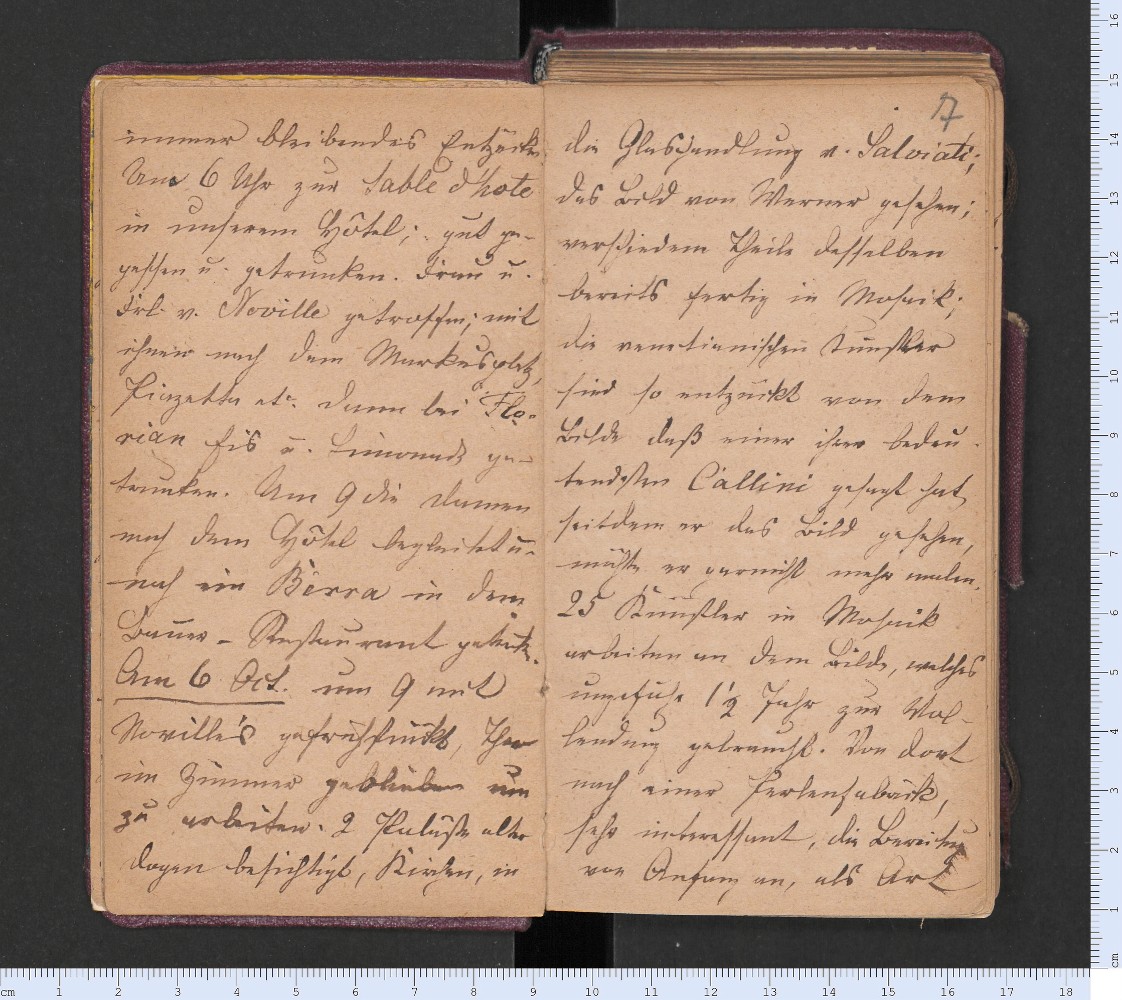 immer bleibendes Entzücken
Um 6 Uhr zur Table d'hote
in unserem Hôtel; gut ge-
gessen u. getrunken. Frau u.
Frl. v. Noville getroffen; mit
ihnen nach dem Markusplatz,
Piazetta etc. dann bei Flo-
rian Eis u. Limonade ge-
trunken. Um 9 die Damen
nach dem Hôtel begleitet u.
noch ein Birra in dem
Bauer-Restaurant getrunk.
Am 6 Oct. um 9 mit
Noville's gefrühstückt,
im Zimmer geblieben um
zu arbeiten. 2 Paläste alter
Dogen besichtigt, Kirchen, in
17
die Glashandlung v. Salviati;
das Bild von Werner gesehen;
verschiedene Theile desselben
bereits fertig in Mosaik;
die venetianischen Künstler
sind so entzückt von dem
Bilde daß einer ihrer bedeu-
tendsten Callini gesagt hat,
seitdem er das Bild gesehen,
möchte er garnicht mehr malen.
25 Künstler in Mosaik
arbeiten an dem Bilde, welches
ungefähr 1½ Jahr zur Vol-
lendung gebraucht. Von dort
nach einer Perlenfabrik,
sehr interessant, die Bereitung
von Anfang an, als Art